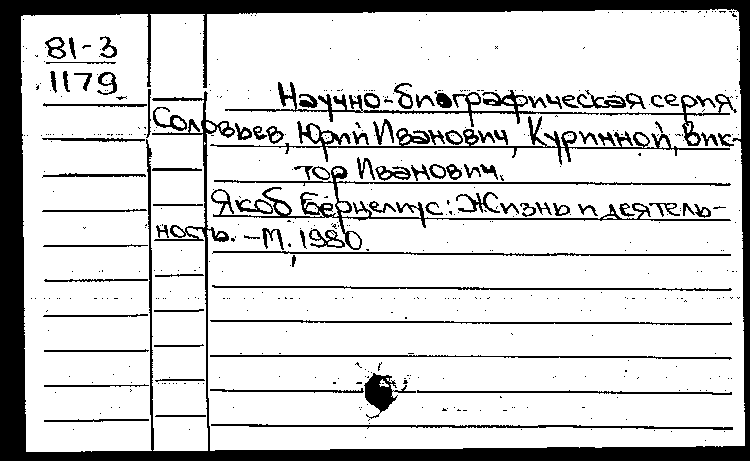 81-3
1179
Научно-биографическая серия.
Соловьев, Юрий Иванович, Куринной, Вик-
тор Иванович.
Якоб Берцелиус: Жизнь и деятель-
ность. – М., 1980.